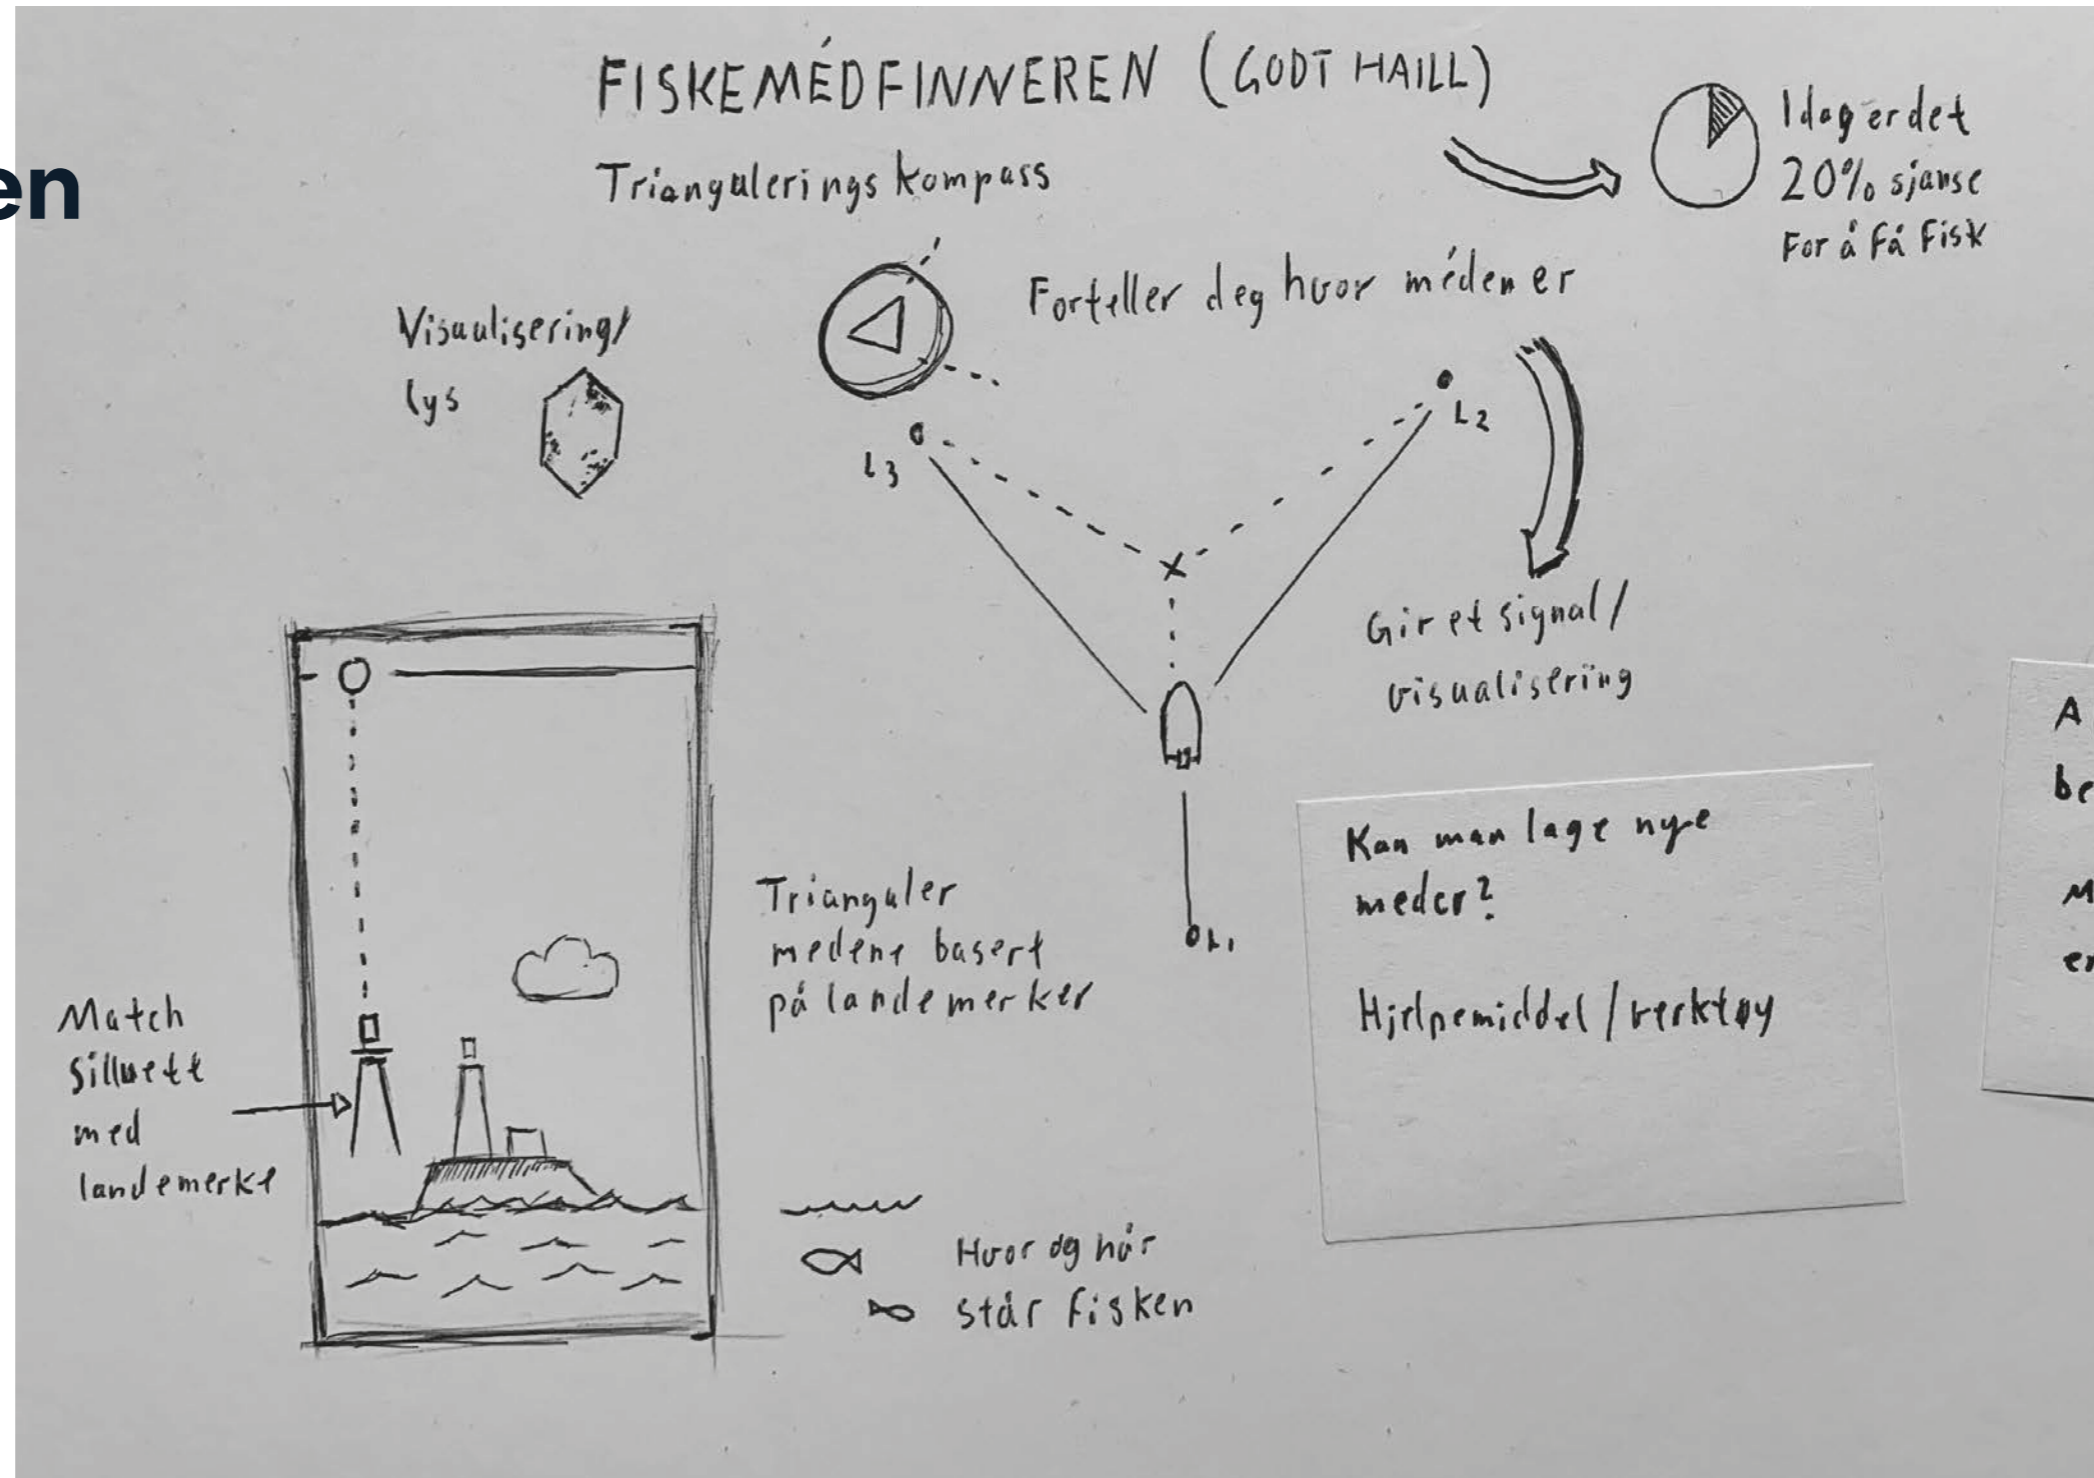 en
FISKEMÉDFINNEREN (GODT HAILL)
Trianguleringskompass
Idag er det
20% sjanse
For å få fisk
Visualisering/
lys
Forteller deg hvor méden er
L2
L3
Gir et signal/
visualisering
L1
Trianguler
medene basert
på landemerker
Match
Silluett
med
landemerke
Hvor og når
står fisken
Kan man lage nye
meder?
Hjelpemiddel/verktøy
A
be
M
er